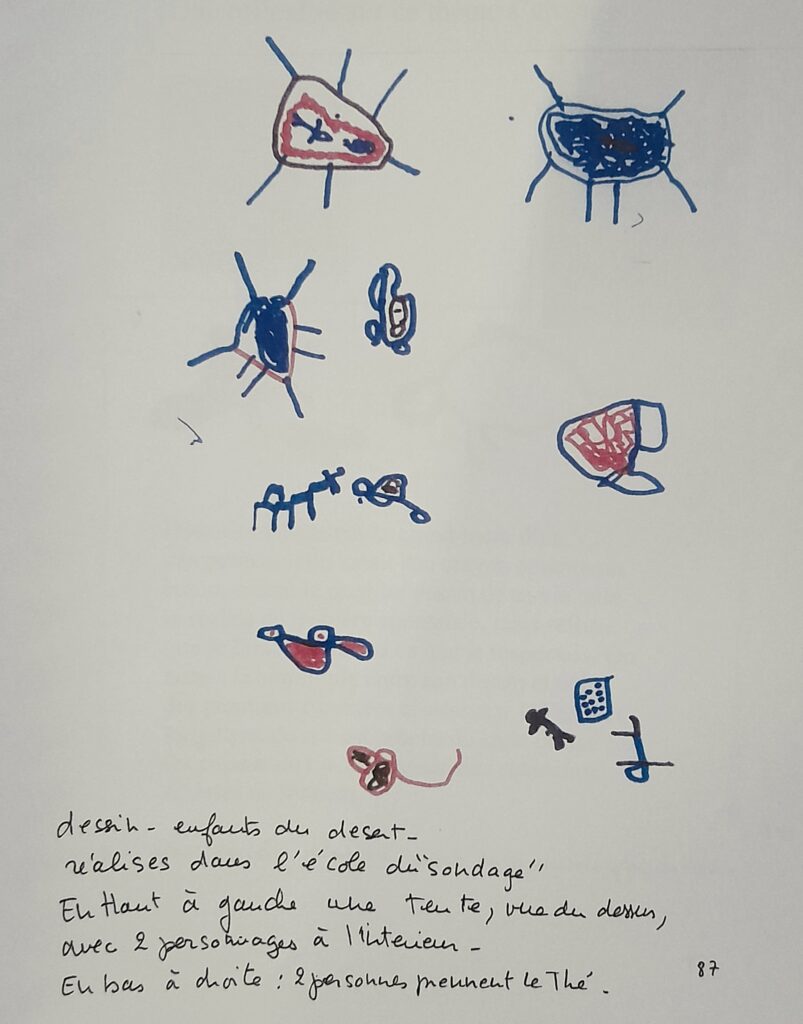 dessin - enfants du desert -
réalises dans l'école du "sondage"
En Haut à gauche une tente, vue du dessus,
avec 2 personnages à l'interieur -
En bas à droite : 2 personnes prennent le Thé.
87